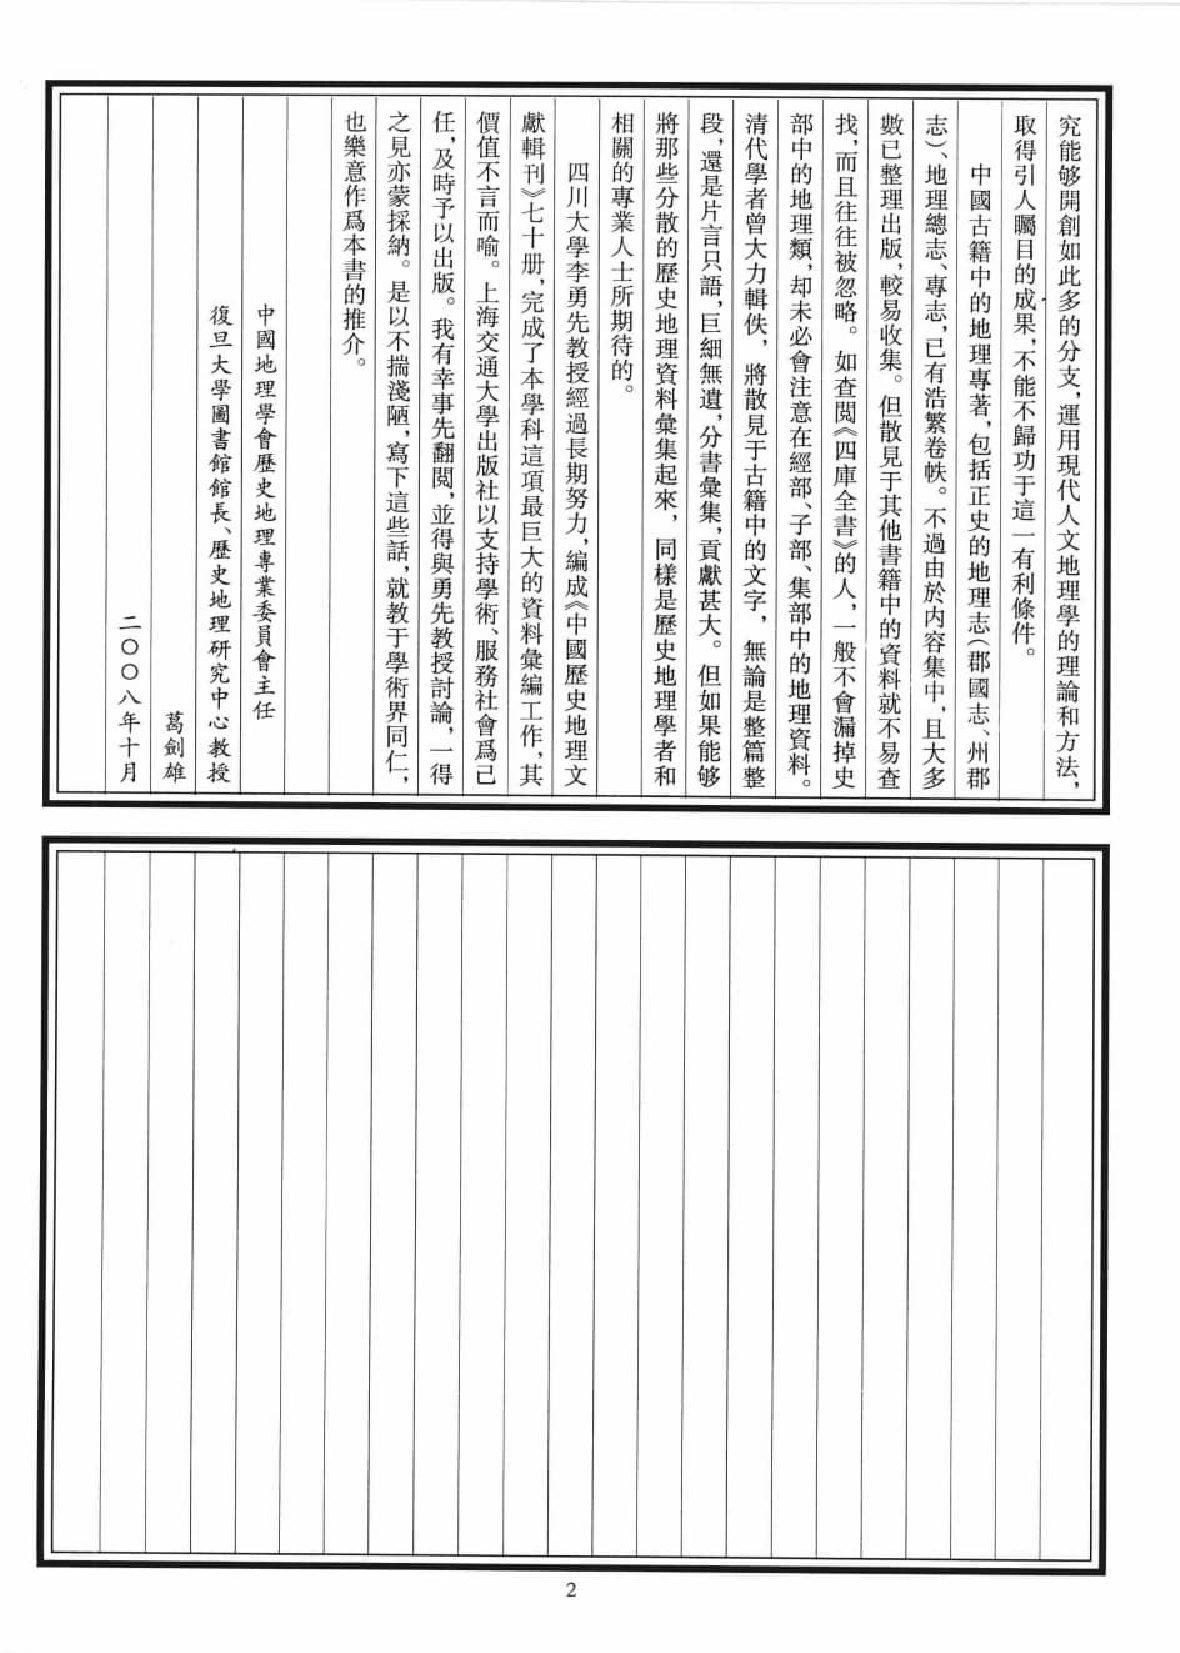 究能够開創如此多的分支，運用現代人文地理學的理論和方法，
取得引人矚目的成果，不能不歸功于這一有利條件。
中國古籍中的地理專著，包括正史的地理志（郡國志、州郡
志）、地理總志、專志，已有浩繁卷帙。不過由於内容集中，且大多
數已整理出版，較易收集。但散見于其他書籍中的資料就不易查
找，而且往往被忽略。如查閲《四庫全書》的人，一般不會漏掉史
部中的地理類，却未必會注意在經部、子部、集部中的地理資料。
清代學者曾大力輯佚，將散見于古籍中的文字，無論是整篇整
段，還是片言只語，巨細無遺，分書彙集，貢獻甚大。但如果能够
將那些分散的歷史地理資料彙集起來，同樣是歷史地理學者和
相關的專業人士所期待的。
四川大學李勇先教授經過長期努力，編成《中國歷史地理文
獻輯刊》七十册，完成了本學科這項最巨大的資料彙編工作，其
價值不言而喻。上海交通大學出版社以支持學術、服務社會爲己
任，及時予以出版。我有幸事先翻閲，並得與勇先教授討論，一得
之見亦蒙採納。是以不揣淺陋，寫下這些話，就教于學術界同仁，
也樂意作爲本書的推介。
中國地理學會歷史地理專業委員會主任
復旦大學圖書館館長、歷史地理研究中心教授
葛劍雄
二〇〇八年十月
2